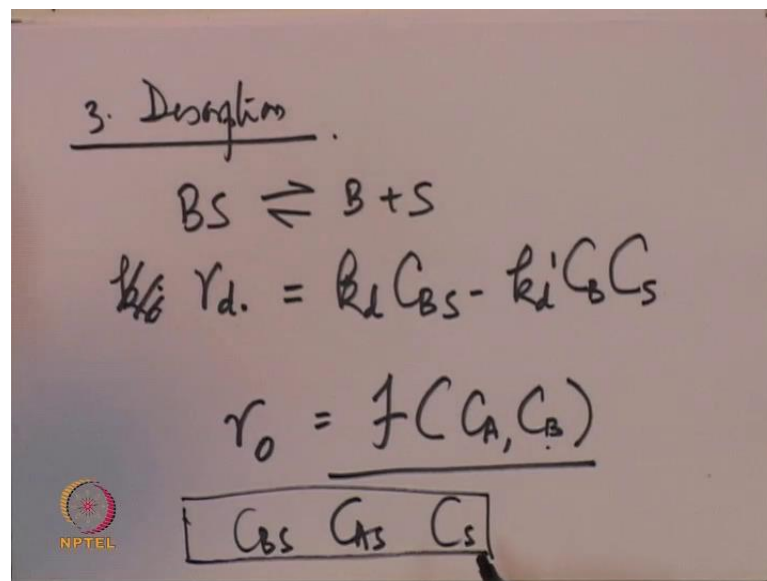 3. Desorption.
BS ⇌ B + S
r_d. = k_d C_BS - k_d' C_B C_S
r_0 = f(C_A, C_B)
C_BS C_AS C_S
NPTEL